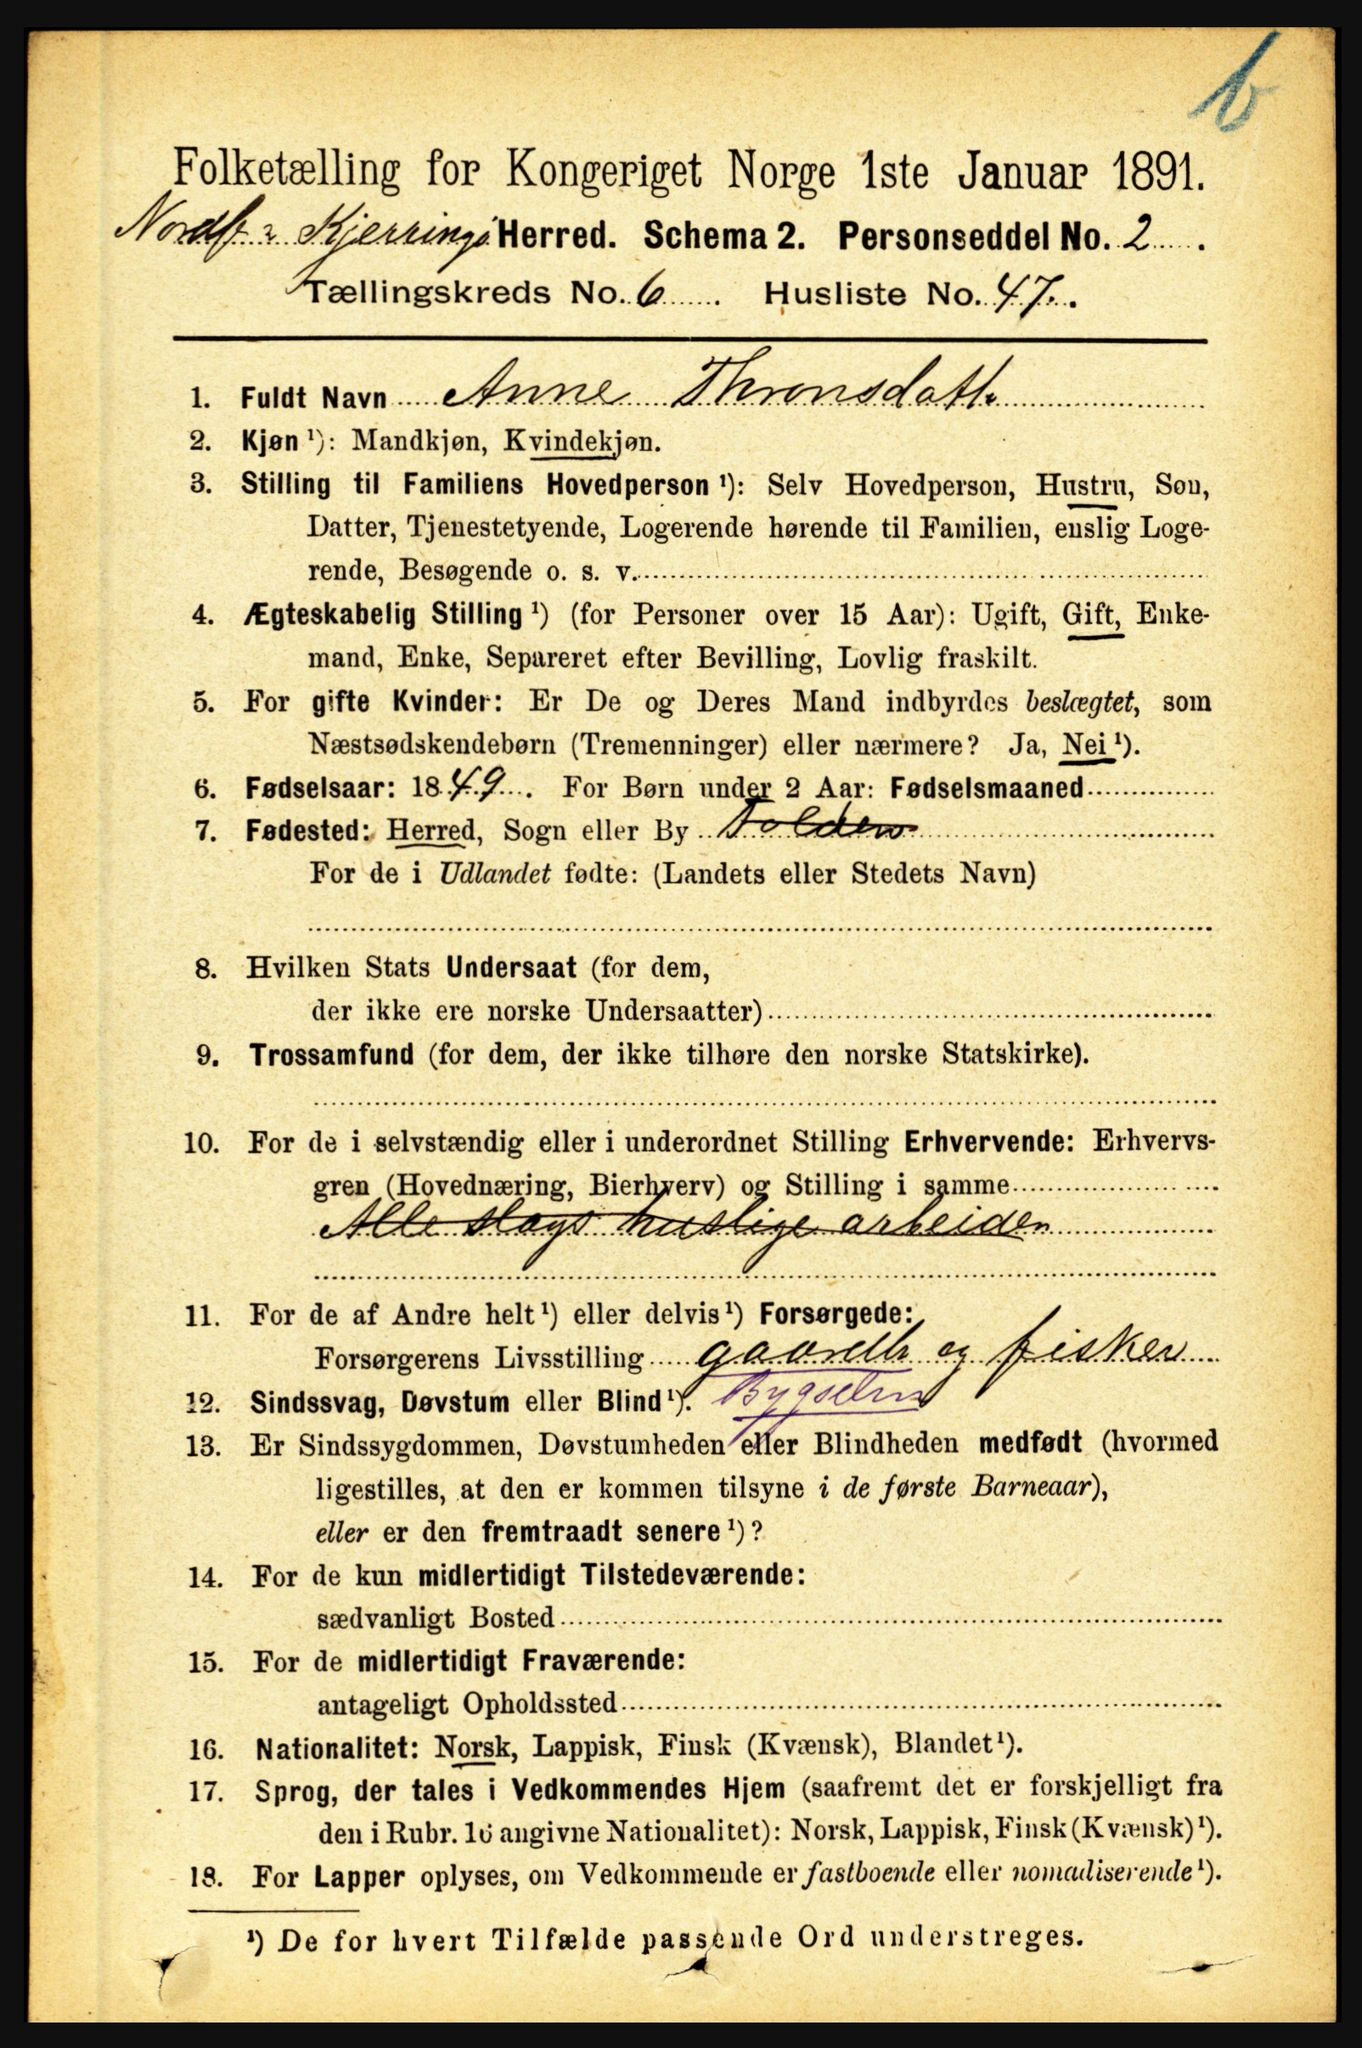 b
Folketælling for Kongeriget Norge 1ste Januar 1891.
Nordf. Kjerringø Herred. Schema 2. Personseddel No. 2.
Tællingskreds No. 6. Husliste No. 47.
1. Fuldt Navn Anne Thronsdatr
2. Kjøn ¹): Mandkjøn, Kvindekjøn.
3. Stilling til Familiens Hovedperson ¹): Selv Hovedperson, Hustru, Søn,
Datter, Tjenestetyende, Logerende hørende til Familien, enslig Loge-
rende, Besøgende o. s. v.
4. Ægteskabelig Stilling ¹) (for Personer over 15 Aar): Ugift, Gift, Enke-
mand, Enke, Separeret efter Bevilling, Lovlig fraskilt.
5. For gifte Kvinder: Er De og Deres Mand indbyrdes beslægtet, som
Næstsødskendebørn (Tremenninger) eller nærmere? Ja, Nei ¹).
6. Fødselsaar: 1849. For Børn under 2 Aar: Fødselsmaaned
7. Fødested: Herred, Sogn eller By Folden
For de i Udlandet fødte: (Landets eller Stedets Navn)
8. Hvilken Stats Undersaat (for dem,
der ikke ere norske Undersaatter)
9. Trossamfund (for dem, der ikke tilhøre den norske Statskirke).
10. For de i selvstændig eller i underordnet Stilling Erhvervende: Erhvervs-
gren (Hovednæring, Bierhverv) og Stilling i samme
Alle slags huslige arbeiden
11. For de af Andre helt ¹) eller delvis ¹) Forsørgede:
Forsørgerens Livsstilling og fisker
12. Sindssvag, Døvstum eller Blind ¹).
13. Er Sindssygdommen, Døvstumheden eller Blindheden medfødt (hvormed
ligestilles, at den er kommen tilsyne i de første Barneaar),
eller er den fremtraadt senere ¹)?
14. For de kun midlertidigt Tilstedeværende:
sædvanligt Bosted
15. For de midlertidigt Fraværende:
antageligt Opholdssted
16. Nationalitet: Norsk, Lappisk, Finsk (Kvænsk), Blandet ¹).
17. Sprog, der tales i Vedkommendes Hjem (saafremt det er forskjelligt fra
den i Rubr. 16 angivne Nationalitet): Norsk, Lappisk, Finsk (Kvænsk) ¹).
18. For Lapper oplyses, om Vedkommende er fastboende eller nomadiserende ¹).
¹) De for hvert Tilfælde passende Ord understreges.